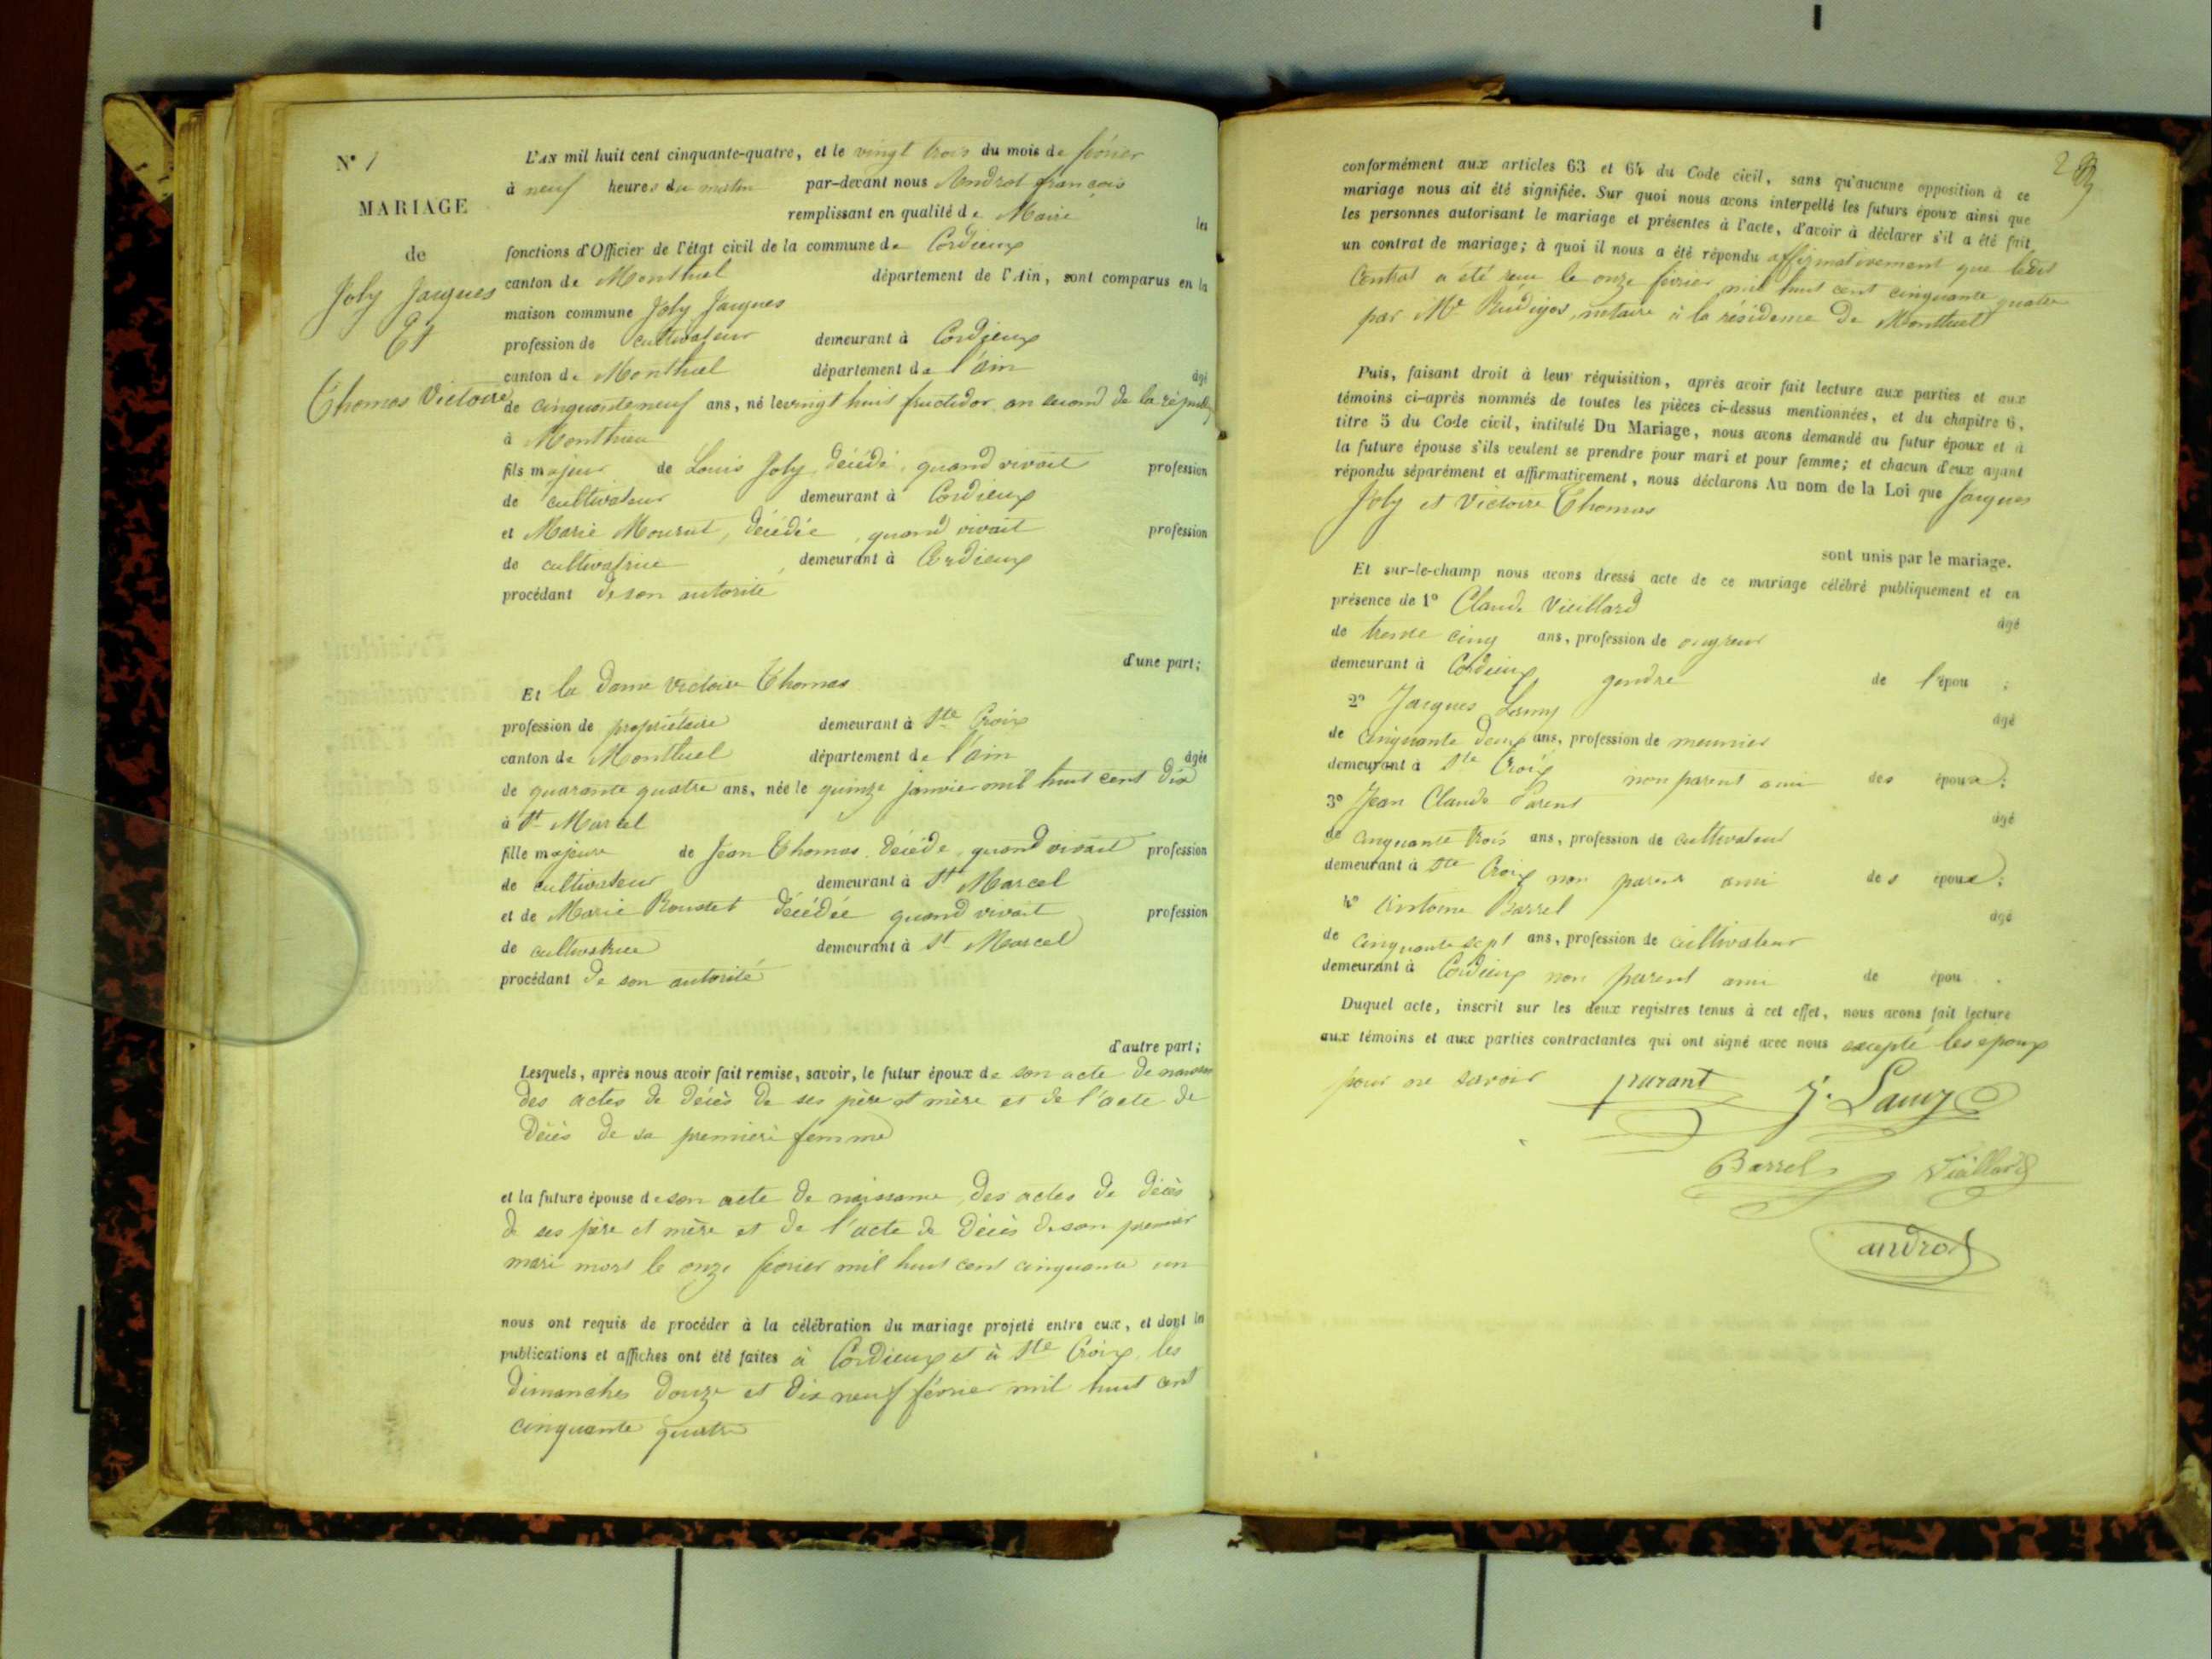 N° 1
MARIAGE
de
Joly Jacques
Et
Thomas Victoire
L'AN mil huit cent cinquante-quatre, et le vingt trois du mois de février
à neuf heures du matin par-devant nous Androt françois
remplissant en qualité de Maire les
fonctions d'Officier de l'état civil de la commune de Cordieux
canton de Montluel département de l'Ain, sont comparus en la
maison commune Joly Jacques
profession de cultivateur demeurant à Cordieux
canton de Montluel département de l'ain âgé
de cinquante neuf ans, né le vingt huit fructidor an second de la républ
à Monthieu
fils majeur de Louis Joly, décédé, quand vivait profession
de cultivateur demeurant à Cordieux
et Marie Mourut, décédée, quand vivait profession
de cultivatrice demeurant à Cordieux
procédant de son autorité
d'une part;
Et la Dame Victoire Thomas
profession de propriétaire demeurant à Ste Croix
canton de Montluel département de l'ain âgée
de quarante quatre ans, née le quinze janvier mil huit cent dix
à St Marcel
fille majeure de Jean Thomas décédé, quand vivait profession
de cultivateur demeurant à St Marcel
et de Marie Roustet décédée quand vivait profession
de cultivatrice demeurant à St Marcel
procédant de son autorité
d'autre part;
Lesquels, après nous avoir fait remise, savoir, le futur époux de son acte de
des actes de décès de ses père et mère et de l'acte de
décès de sa premiere femme
et la future épouse de son acte de naissance, des actes de décès
de ses père et mère et de l'acte de décès de son premier
mari mort le onze février mil huit cent cinquante un
nous ont requis de procéder à la célébration du mariage projeté entre eux, et dont les
publications et affiches ont été faites à Cordieux et à Ste Croix les
dimanches douze et dix neuf février mil huit cent
cinquante quatre
conformément aux articles 63 et 64 du Code civil, sans qu'aucune opposition à ce
mariage nous ait été signifiée. Sur quoi nous avons interpellé les futurs époux ainsi que
les personnes autorisant le mariage et présentes à l'acte, d'avoir à déclarer s'il a été fait
un contrat de mariage; à quoi il nous a été répondu affirmativement que ledit
Contrat a été reçu le onze février mil huit cent cinquante quatre
par Me notaire à la résidence de Montluel
Puis, faisant droit à leur réquisition, après avoir fait lecture aux parties et aux
témoins ci-après nommés de toutes les pièces ci-dessus mentionnées, et du chapitre 6,
titre 5 du Code civil, intitulé Du Mariage, nous avons demandé au futur époux et à
la future épouse s'ils veulent se prendre pour mari et pour femme; et chacun d'eux ayant
répondu séparément et affirmativement, nous déclarons Au nom de la Loi que Jacques
Joly et Victoire Thomas
sont unis par le mariage.
Et sur-le-champ nous avons dressé acte de ce mariage célébré publiquement et en
présence de 1° Claude Vieillard
âgé
de trente cinq ans, profession de
demeurant à Cordieux gendre de l'épou ;
2° Jacques Lamy
âgé
de cinquante deux ans, profession de meunier
demeurant à Ste Croix non parent ami des époux;
3° Jean Claude Parent
âgé
de cinquante trois ans, profession de cultivateur
demeurant à Ste Croix non parent ami des époux;
4° Antoine Barrel
âgé
de cinquante sept ans, profession de cultivateur
demeurant à Cordieux non parent ami de épou .
Duquel acte, inscrit sur les deux registres tenus à cet effet, nous avons fait lecture
aux témoins et aux parties contractantes qui ont signé avec nous excepté les époux
pour ne savoir
parant J. Lamy
Barrel Viellard
androt